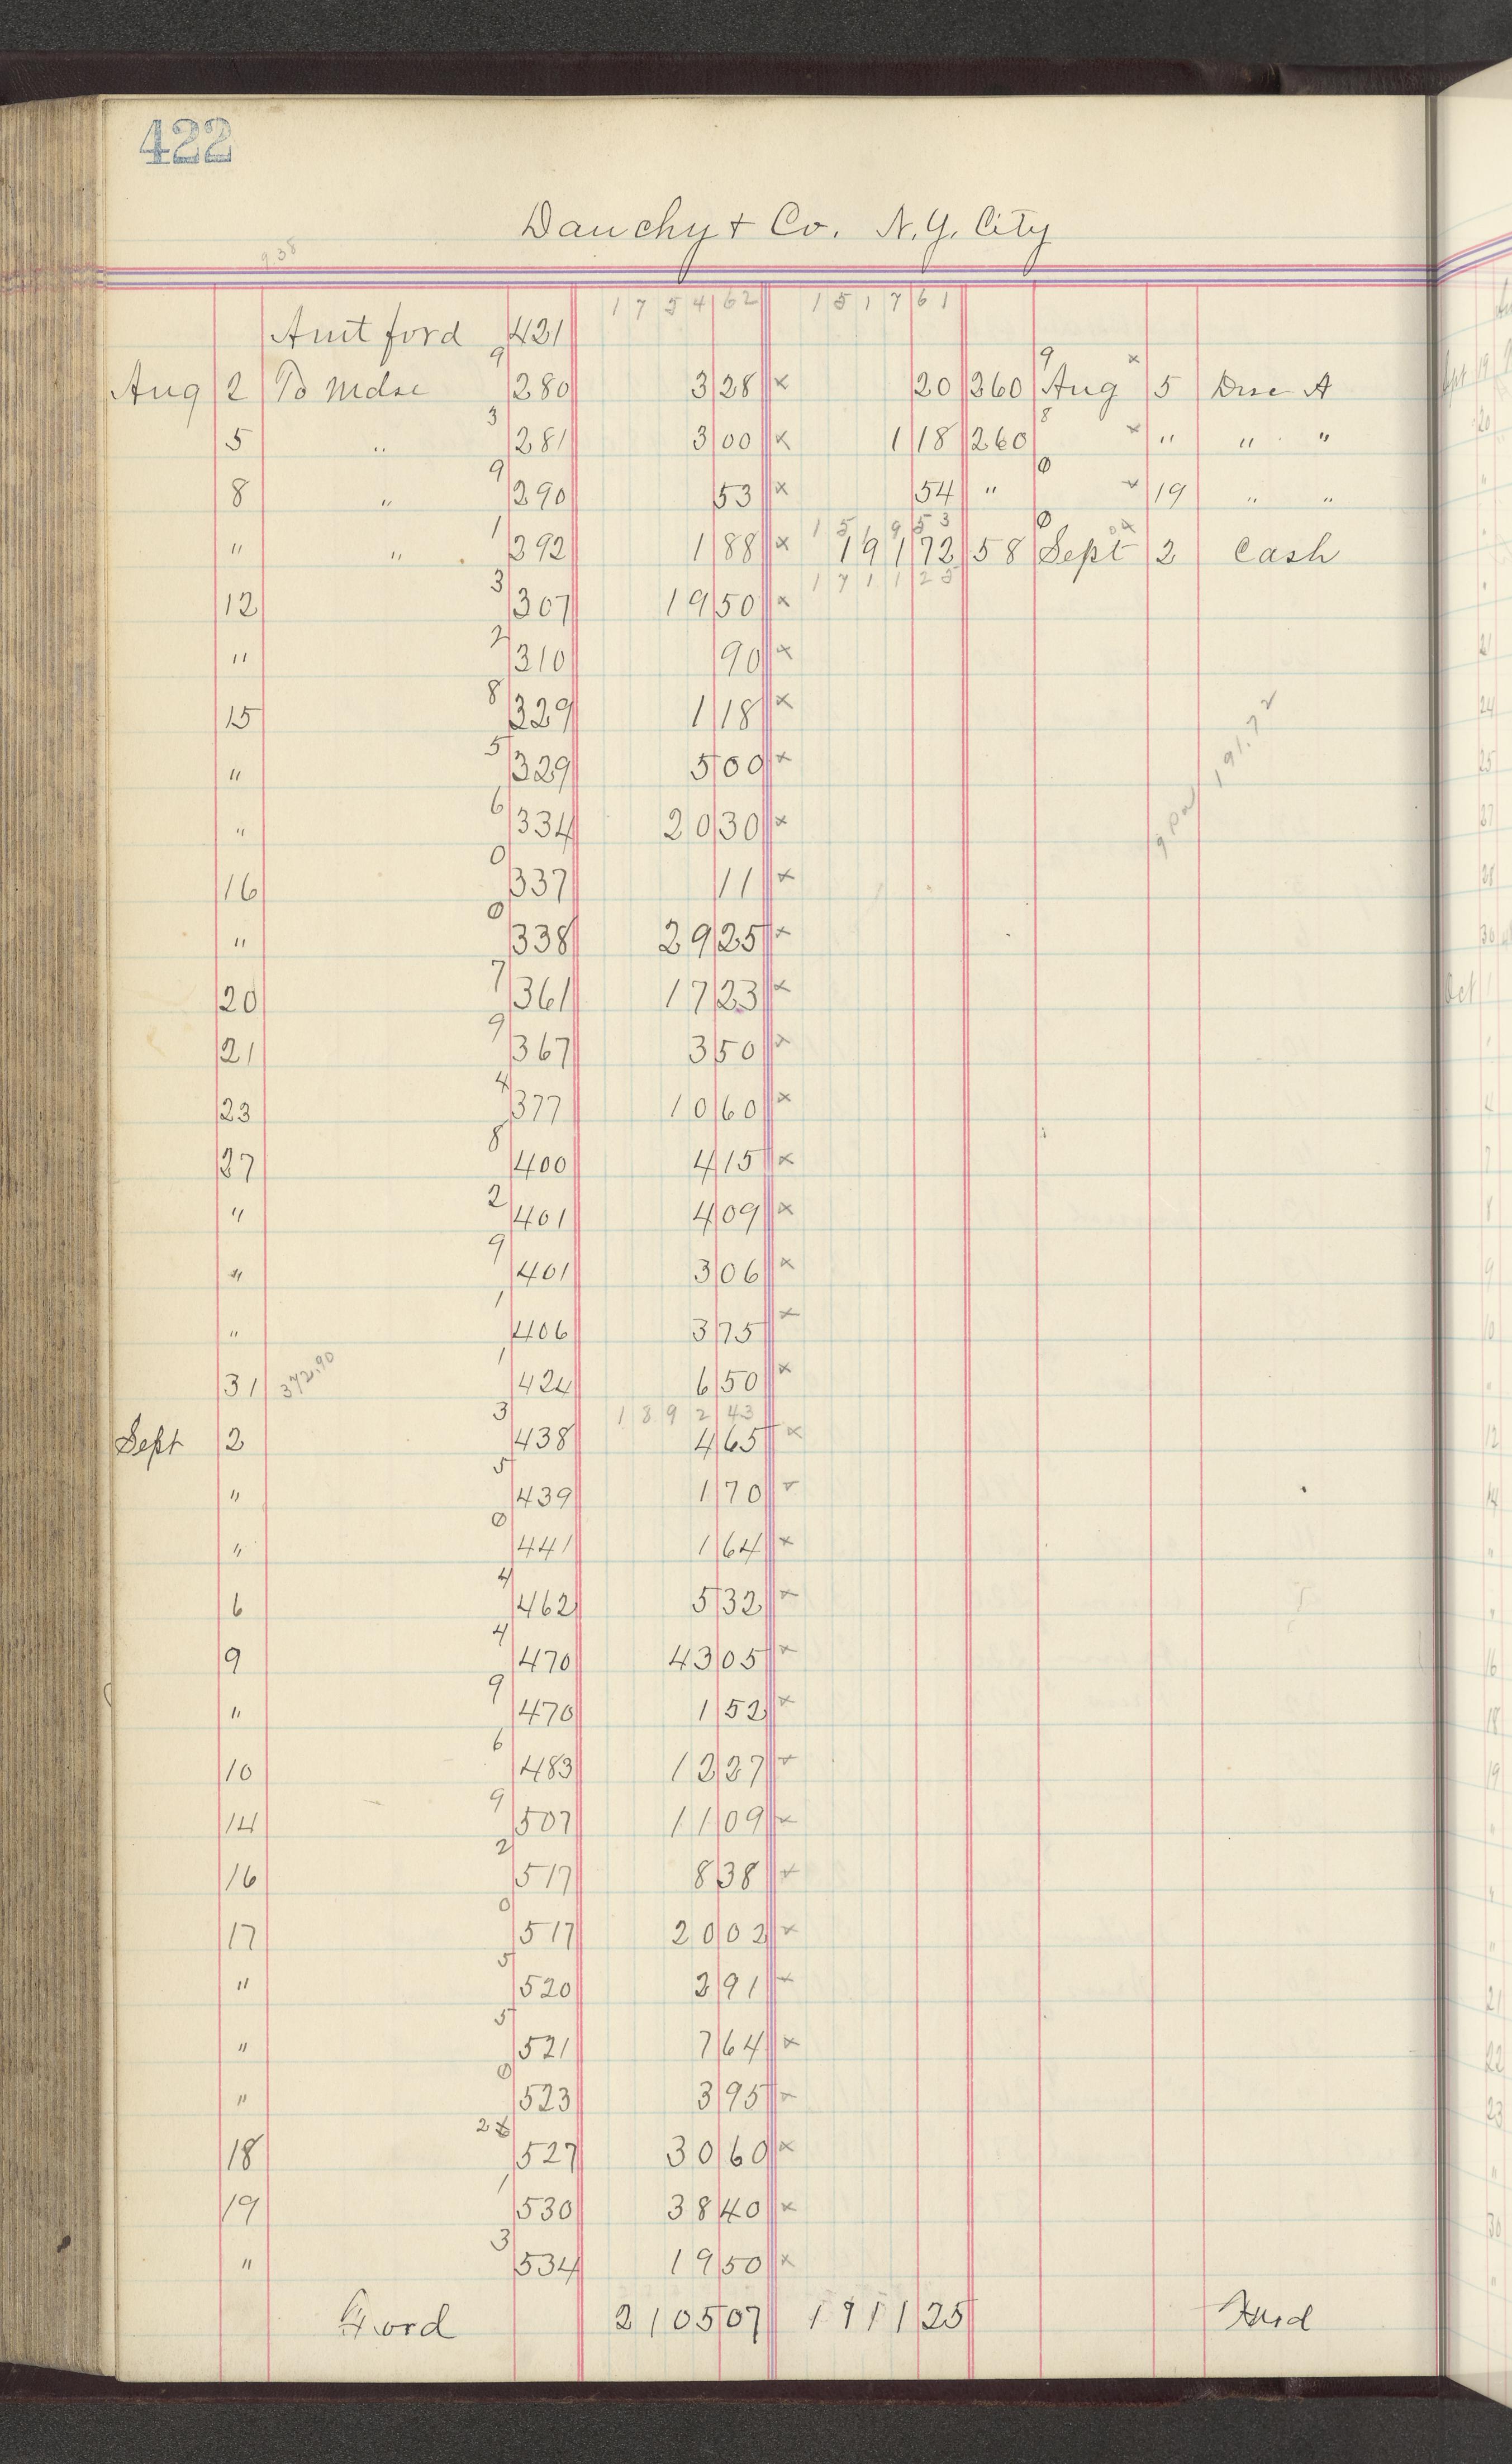 422
Dauchy & Co. N.Y. City
9.38
Amt ford 421 1754 62 1517 61
Aug 2 To Mdse 9 280 3 28 x 20 260 9 Aug x 5 Disc A
5 " 3 281 3 00 x 1 18 260 8 x " " "
8 " 9 290 53 x 54 " 0 x 19 " "
" " 1 292 1 88 x 1519 53 191 72 58 0 Sept 2 Cash
12 3 307 19 50 x 1711 25
" 2 310 90 x
15 8 329 1 18 x
" 5 329 5 00 x
" 6 334 20 30 x
16 0 337 11 x
" 0 338 29 25 x
20 7 361 17 23 x
21 9 367 3 50 x
23 4 377 10 60 x
27 8 400 4 15 x
" 2 401 4 09 x
" 9 401 3 06 x
" 1 406 3 75 x
31 372.90 1 424 6 50 x
1892 43
Sept 2 3 438 4 65 x
" 5 439 1 70 x
" 0 441 1 64 x
6 4 462 5 32 x
9 4 470 43 05 x
" 9 470 1 52 x
10 6 483 12 27 x
14 9 507 11 09 x
16 2 517 8 38 x
17 0 517 20 02 x
" 5 520 2 91 x
" 5 521 7 64 x
" 0 523 3 95 x
18 2 527 30 60 x
19 1 530 38 40 x
" 3 534 19 50 x
Ford 2105 07 1911 25 Ford
191.72